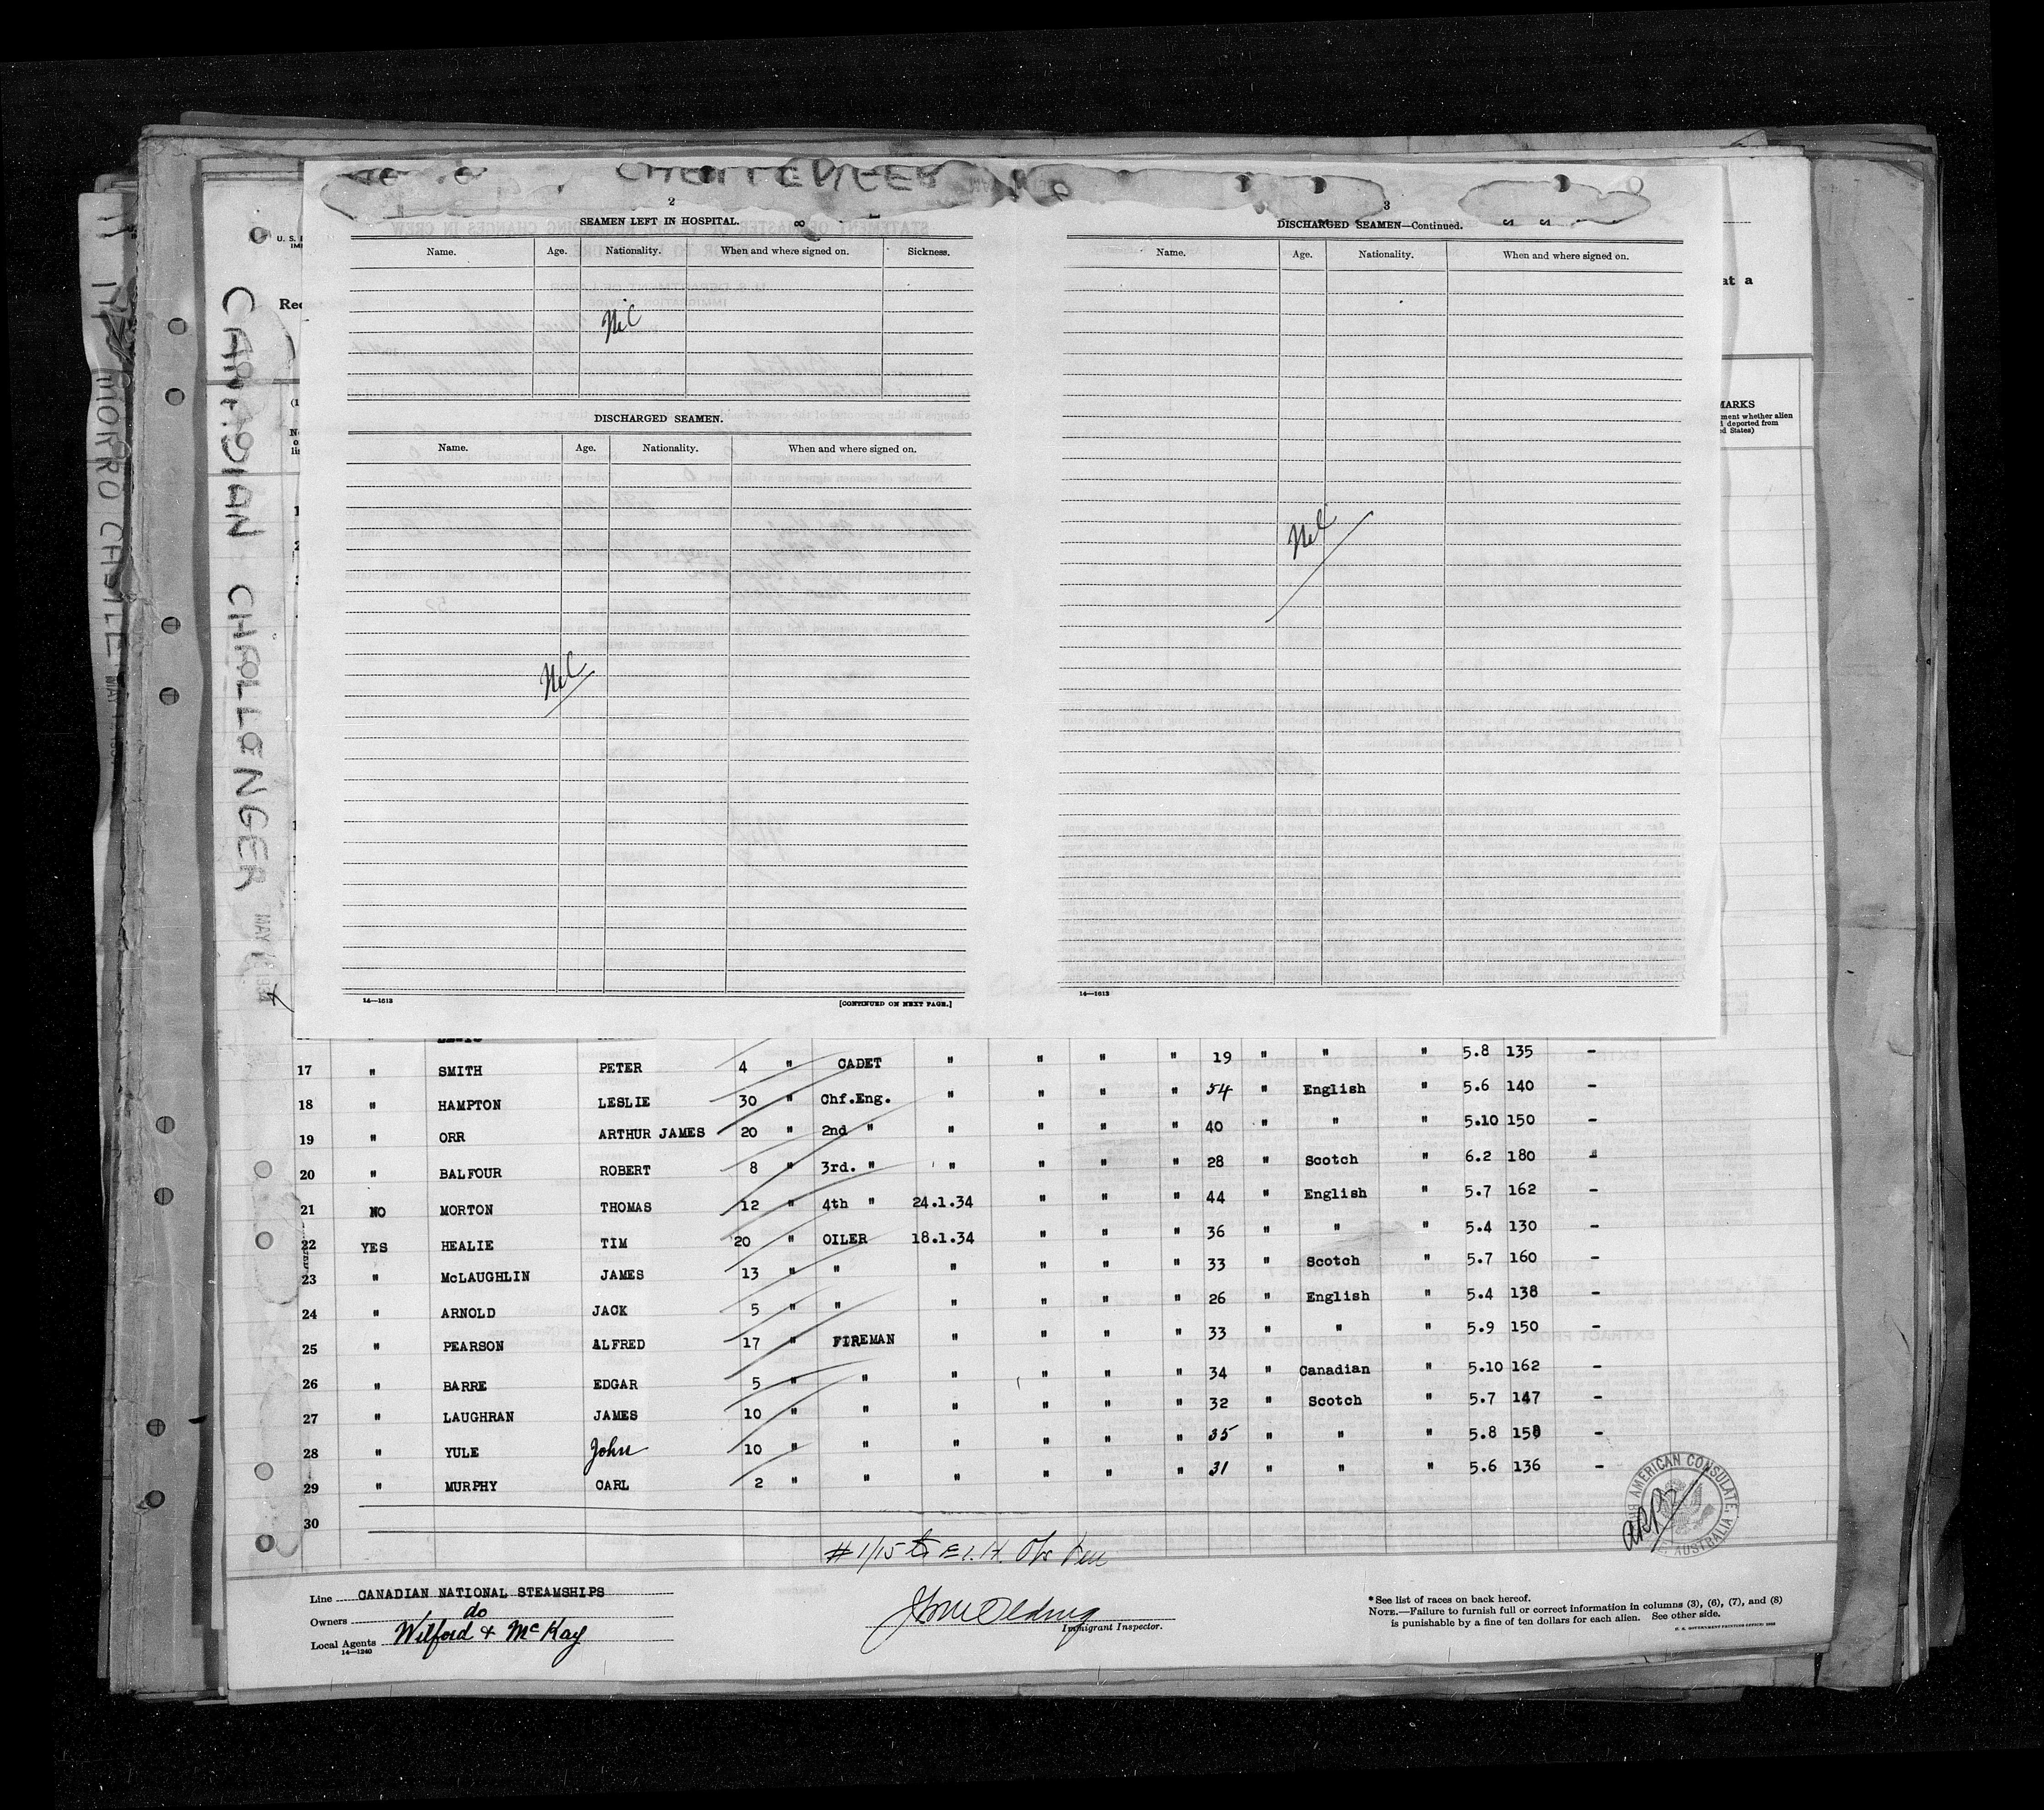 CHALLENGER
2
SEAMEN LEFT IN HOSPITAL.
Name. Age. Nationality. When and where signed on. Sickness.
Nil
DISCHARGED SEAMEN.
Name. Age. Nationality. When and where signed on.
Nil
14—1613 [CONTINUED ON NEXT PAGE.]
3
DISCHARGED SEAMEN—Continued.
Name. Age. Nationality. When and where signed on.
Nil
14—1613
U. S.
at a
MARKS
ment whether alien
deported from
ed States)
CANADIAN CHALLENGER
MORRO CASTLE
MAY
17 " SMITH PETER 4 " CADET " " " " 19 " " " 5.8 135 -
18 " HAMPTON LESLIE 30 " Chf.Eng. " " " " 54 " English " 5.6 140 -
19 " ORR ARTHUR JAMES 20 " 2nd " " " " " 40 " " " 5.10 150 -
20 " BALFOUR ROBERT 8 " 3rd. " " " " " 28 " Scotch " 6.2 180 "
21 NO MORTON THOMAS 12 " 4th " 24.1.34 " " " 44 " English " 5.7 162 -
22 YES HEALIE TIM 20 " OILER 18.1.34 " " " 36 " " " 5.4 130 -
23 " McLAUGHLIN JAMES 13 " " " " " " 33 " Scotch " 5.7 160 -
24 " ARNOLD JACK 5 " " " " " " 26 " English " 5.4 138 -
25 " PEARSON ALFRED 17 " FIREMAN " " " " 33 " " " 5.9 150 -
26 " BARRE EDGAR 5 " " " " " " 34 " Canadian " 5.10 162 -
27 " LAUGHRAN JAMES 10 " " " " " " 32 " Scotch " 5.7 147 -
28 " YULE John 10 " " " " " " 35 " " " 5.8 158 -
29 " MURPHY CARL 2 " " " " " " 31 " " " 5.6 136 -
30
AMERICAN CONSULATE
AUSTRALIA
Line CANADIAN NATIONAL STEAMSHIPS
Owners do
Local Agents Wilford & McKay
14—1240
Immigrant Inspector.
*See list of races on back hereof.
NOTE.—Failure to furnish full or correct information in columns (3), (6), (7), and (8)
is punishable by a fine of ten dollars for each alien. See other side.
U. S. GOVERNMENT PRINTING OFFICE